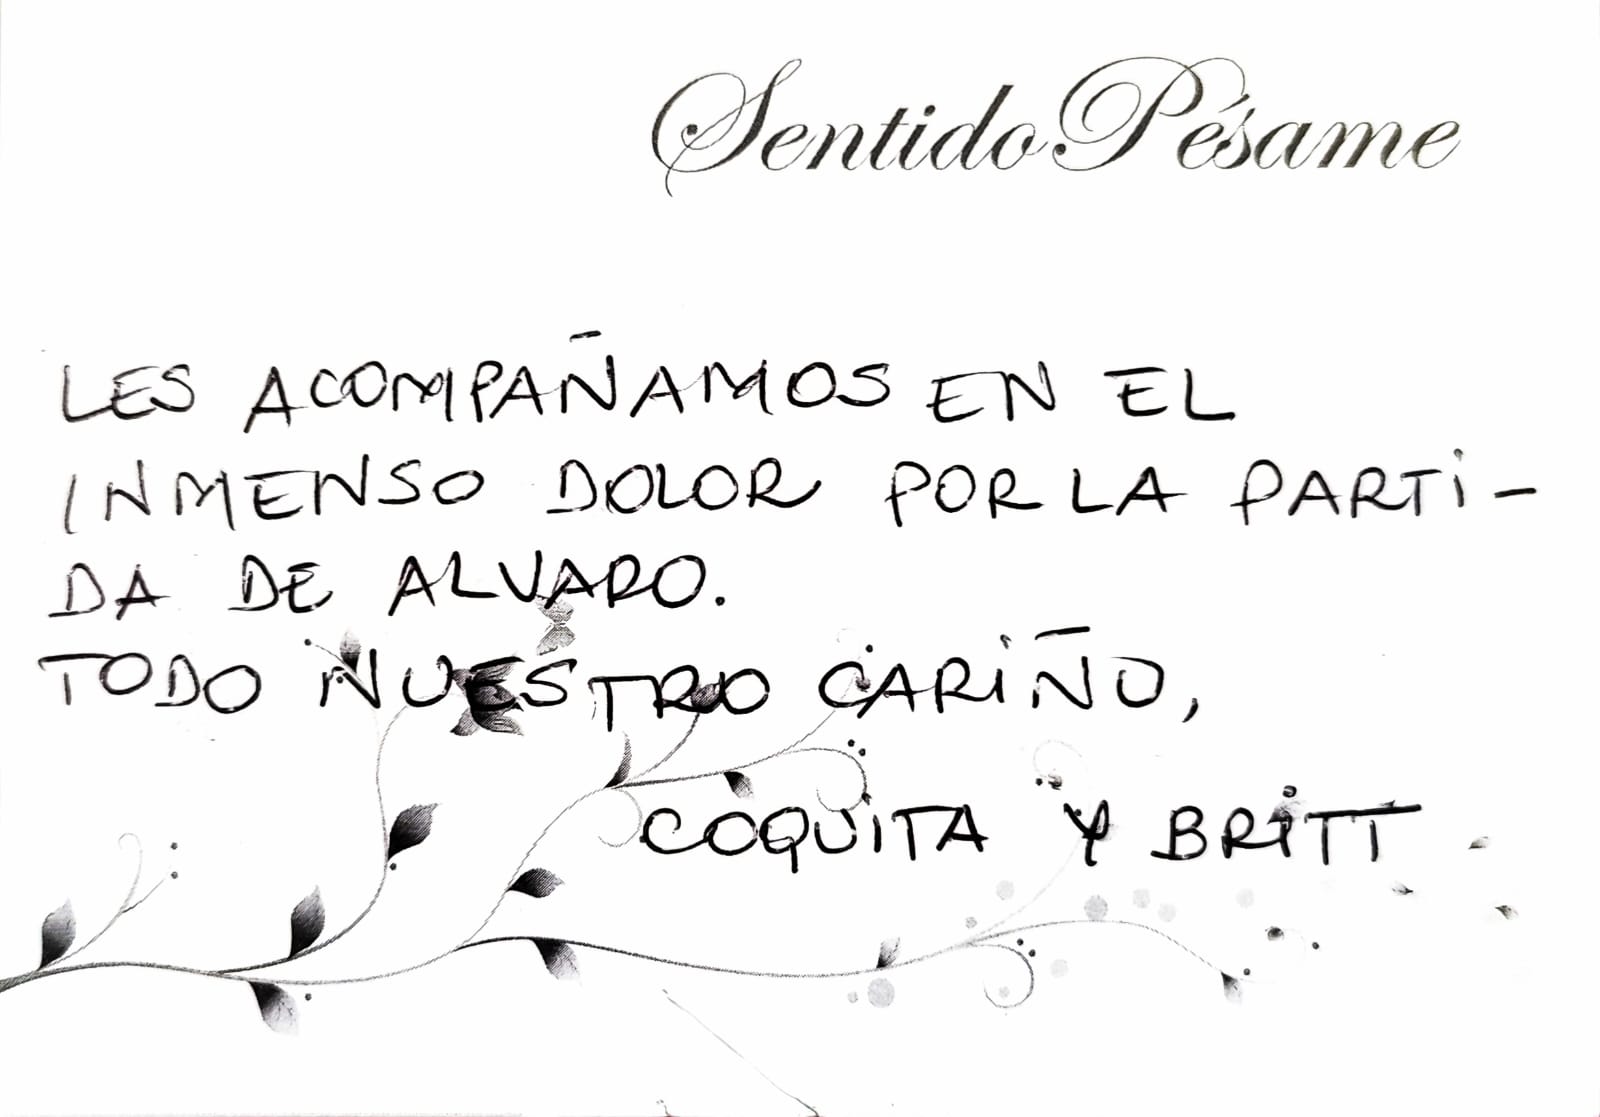 Sentido Pésame
LES ACOMPAÑAMOS EN EL
INMENSO DOLOR POR LA PARTI-
DA DE ALVARO.
TODO NUESTRO CARIÑO,
COQUITA Y BRITT